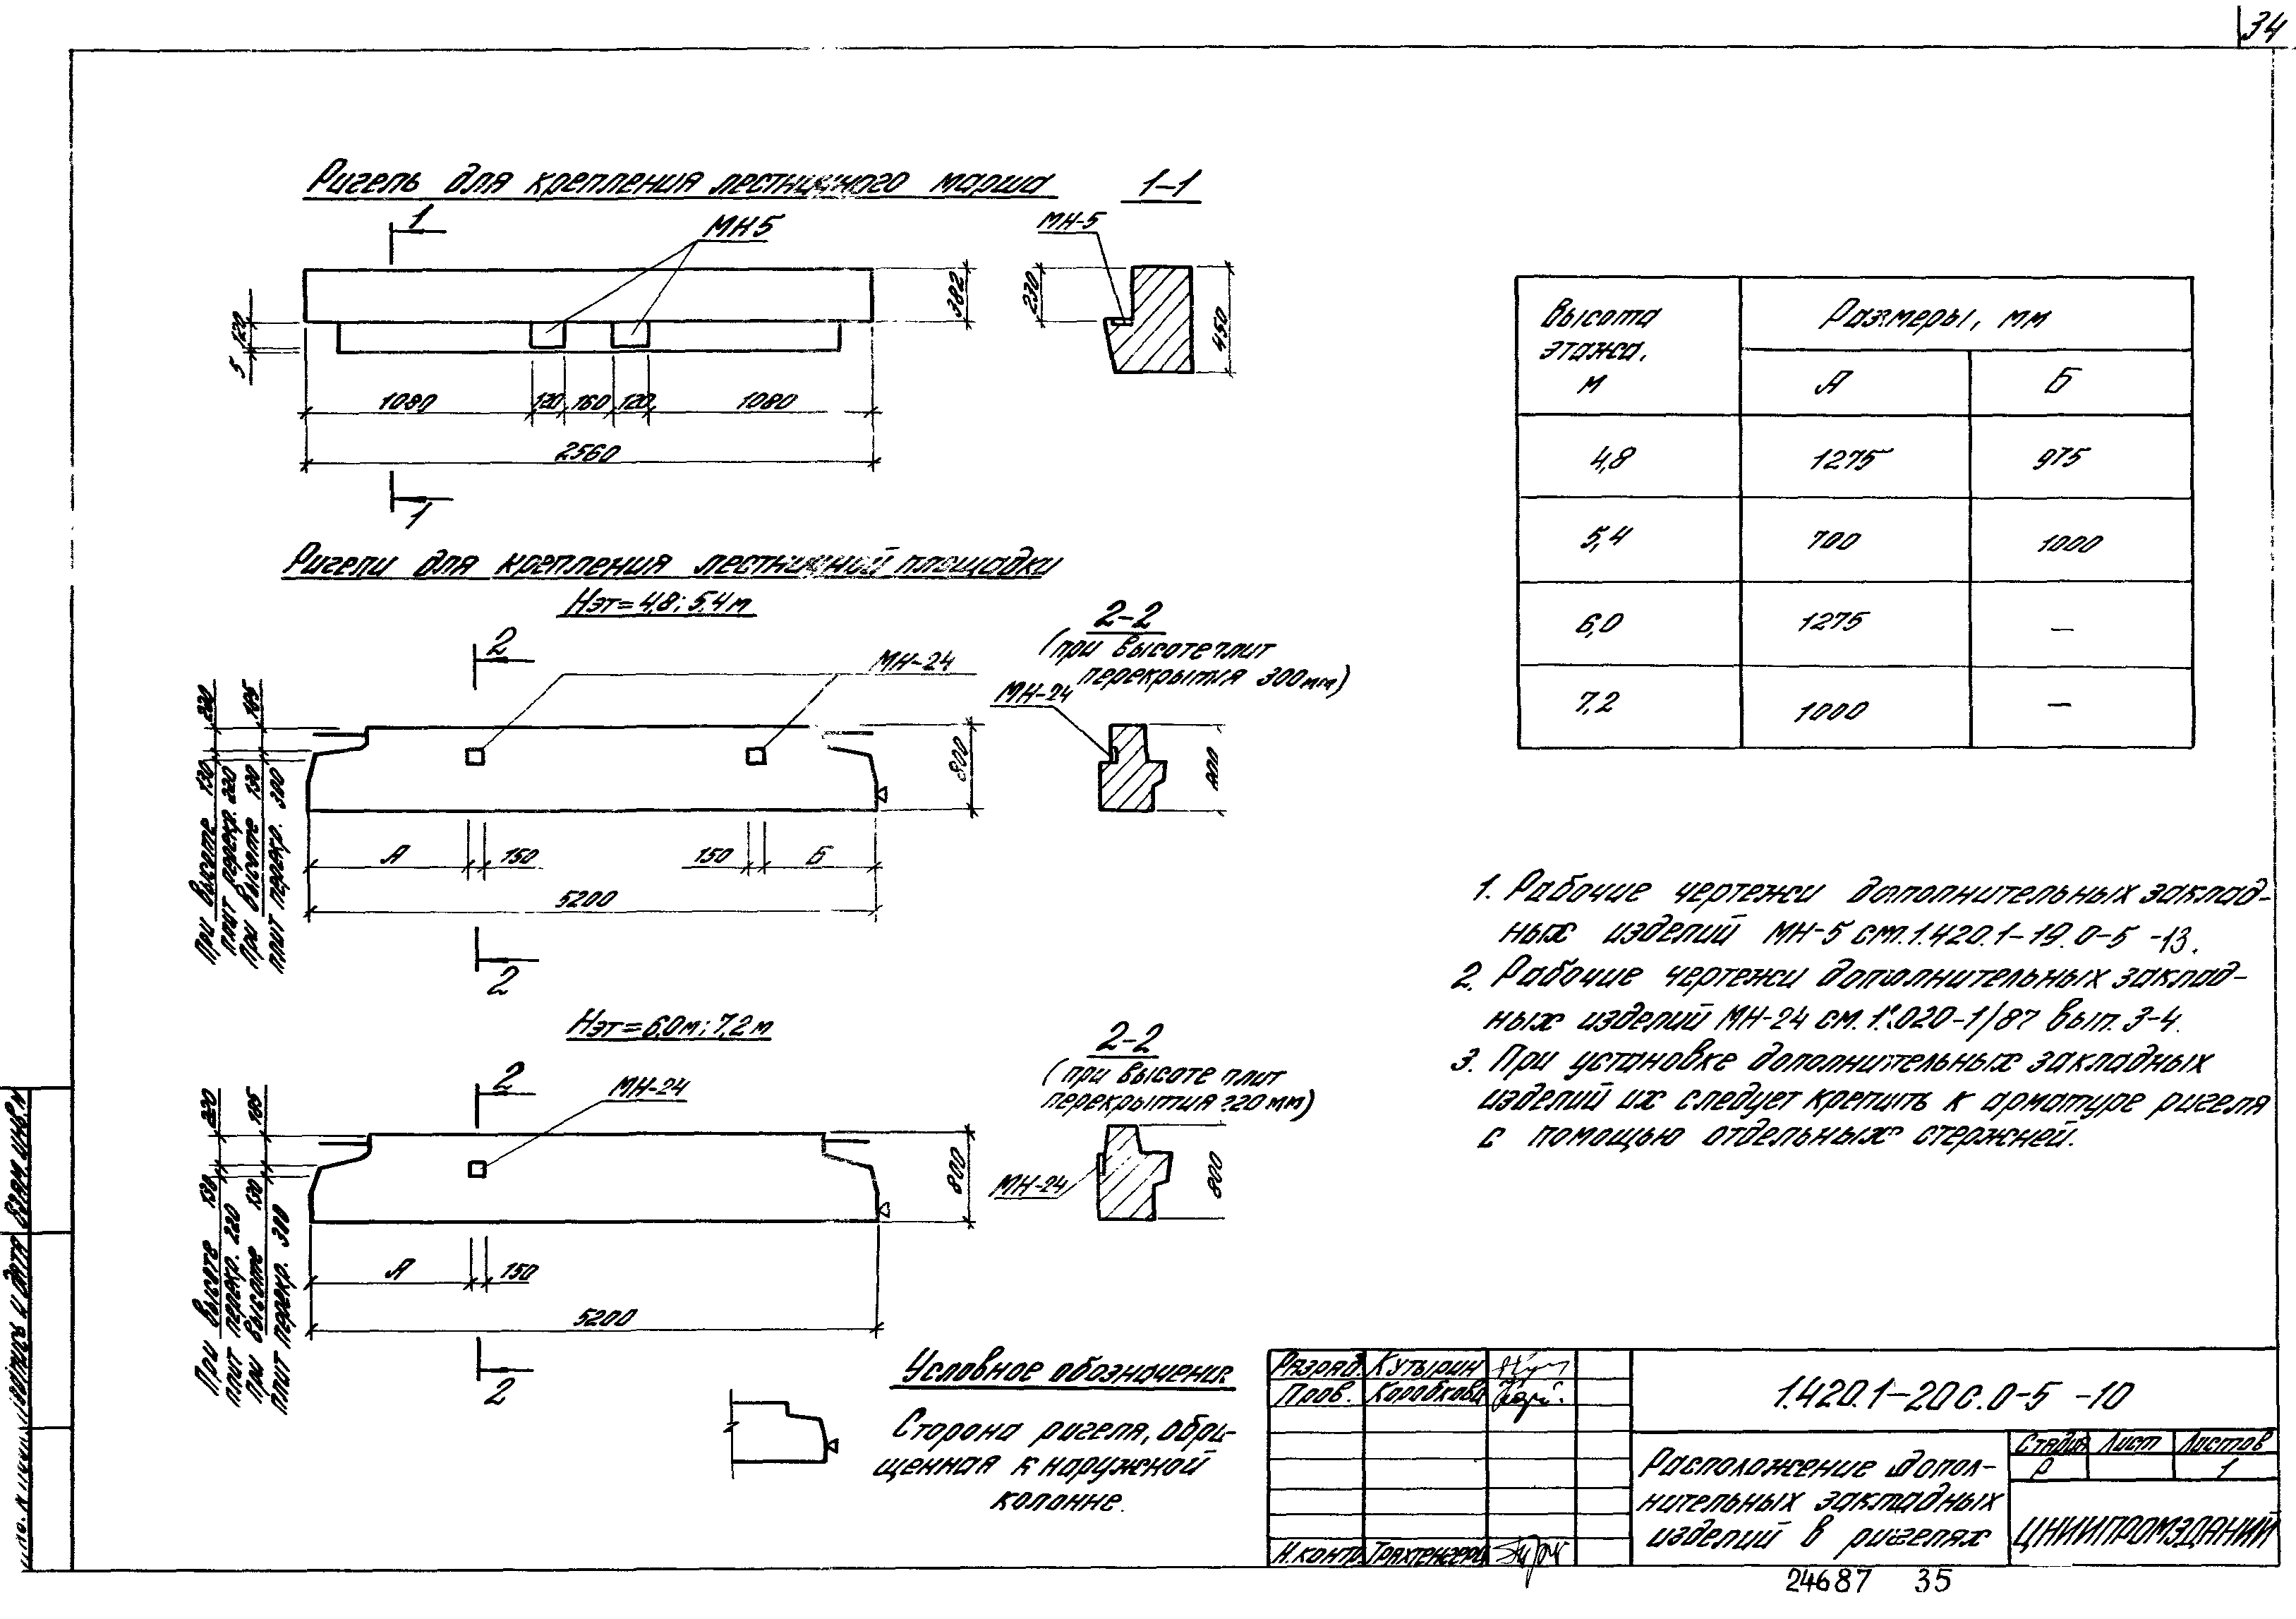 34
Ригель для крепления лестничного марша
1-1
1
МН5
МН-5
382
230
450
120
5
1080
120
160
120
1080
2560
1
Высота этажа, м
Размеры, мм
А
Б
4,8
1275
975
5,4
700
1000
6,0
1275
—
7,2
1000
—
Ригели для крепления лестничной площадки
Нэт=4,8; 5,4м
2
МН-24
2-2
(при высоте плит
перекрытия 300мм)
МН-24
800
800
При высоте 130 220
плит перекр. 220
При высоте 130 185
плит перекр. 300
А
150
150
Б
5200
2
Нэт=6,0м; 7,2м
2
МН-24
2-2
(при высоте плит
перекрытия 220мм)
МН-24
800
800
При высоте 130 220
плит перекр. 220
при высоте 130 185
плит перекр. 300
А
150
5200
2
1. Рабочие чертежи дополнительных заклад-
ных изделий МН-5 см.1.420.1-19.0-5 -13.
2. Рабочие чертежи дополнительных заклад-
ных изделий МН-24 см. 1.020-1/87 вып. 3-4.
3. При установке дополнительных закладных
изделий их следует крепить к арматуре ригеля
с помощью отдельных стержней.
Условное обозначение
Сторона ригеля, обра-
щенная к наружной
колонне.
Разраб. Кутырин
Пров. Коробкова
Н.контр. Трахтенгерц
1.420.1-20с.0-5 -10
Расположение допол-
нительных закладных
изделий в ригелях
Стадия Лист Листов
Р 1
ЦНИИПРОМЗДАНИЙ
24687 35
Взам. инв. №
Подпись и дата